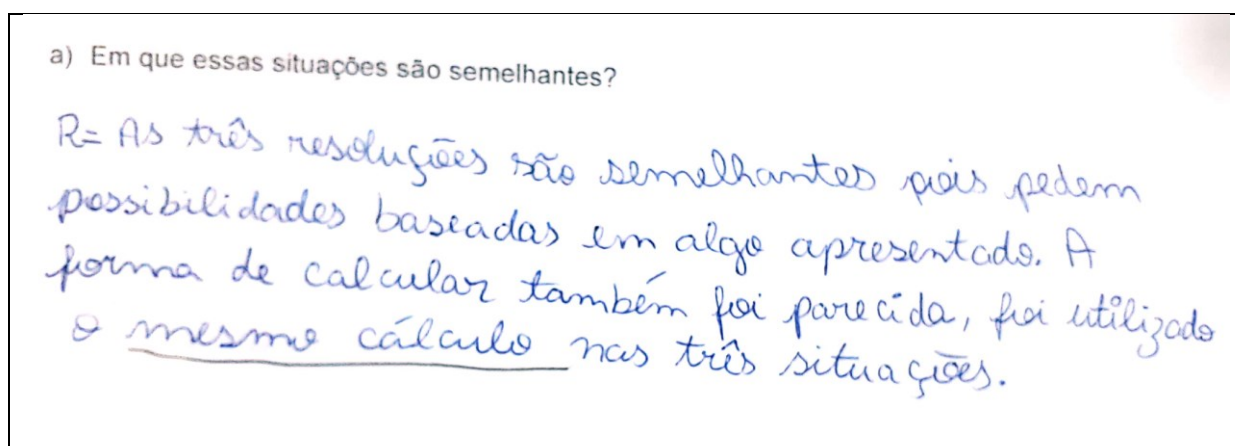 a) Em que essas situações são semelhantes?
R= As três resoluções são semelhantes pois pedem
possibilidades baseadas em algo apresentado. A
forma de calcular também foi parecida, foi utilizado
o mesmo cálculo nas três situações.